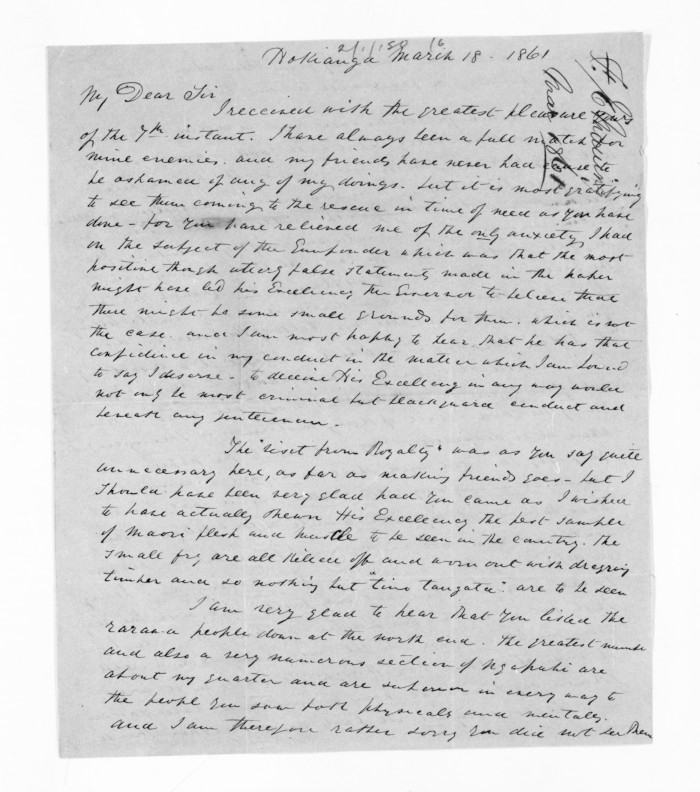 Hokianga March 18 - 1861
My Dear Sir
I received with the greatest pleasure yours
of the 7th instant. I have always been a full match for
mine enemies. and my friends have never had cause to
be ashamed of any of my doings. but it is most gratifying
to see them coming to the rescue in time of need as you have
done - for you have relieved me of the only anxiety I had
on the subject of the Gunpowder which was that the most
positive though utterly false statements made in the paper
might have led his Excellency the Governor to believe that
there might be some small grounds for them. which is not
the case. and I am most happy to hear that he has that
confidence in my conduct in the matter which I am bound
to say I deserve - to deceive His Excellency in any way would
not only be most criminal but blackguard conduct and
beneath any gentleman.
The "visit from Royalty" was as you say quite
unnecessary here, as far as making friends goes - but I
should have been very glad had you came as I wished
to have actually shewn His Excellency the best sample
of Maori flesh and muscle to be seen in the country. the
small fry are all killed off and worn out with dragging
timber and so nothing but "tino tangata" are to be seen
I am very glad to hear that you liked the
rarawa people down at the north end. the greatest number
and also a very numerous section of Ngapuhi are
about my quarter and are superior in every way to
the people you saw both physically and mentally.
and I am therefore rather sorry you did not see them
2/1/158 16
F. E. Maning
Mar 1861